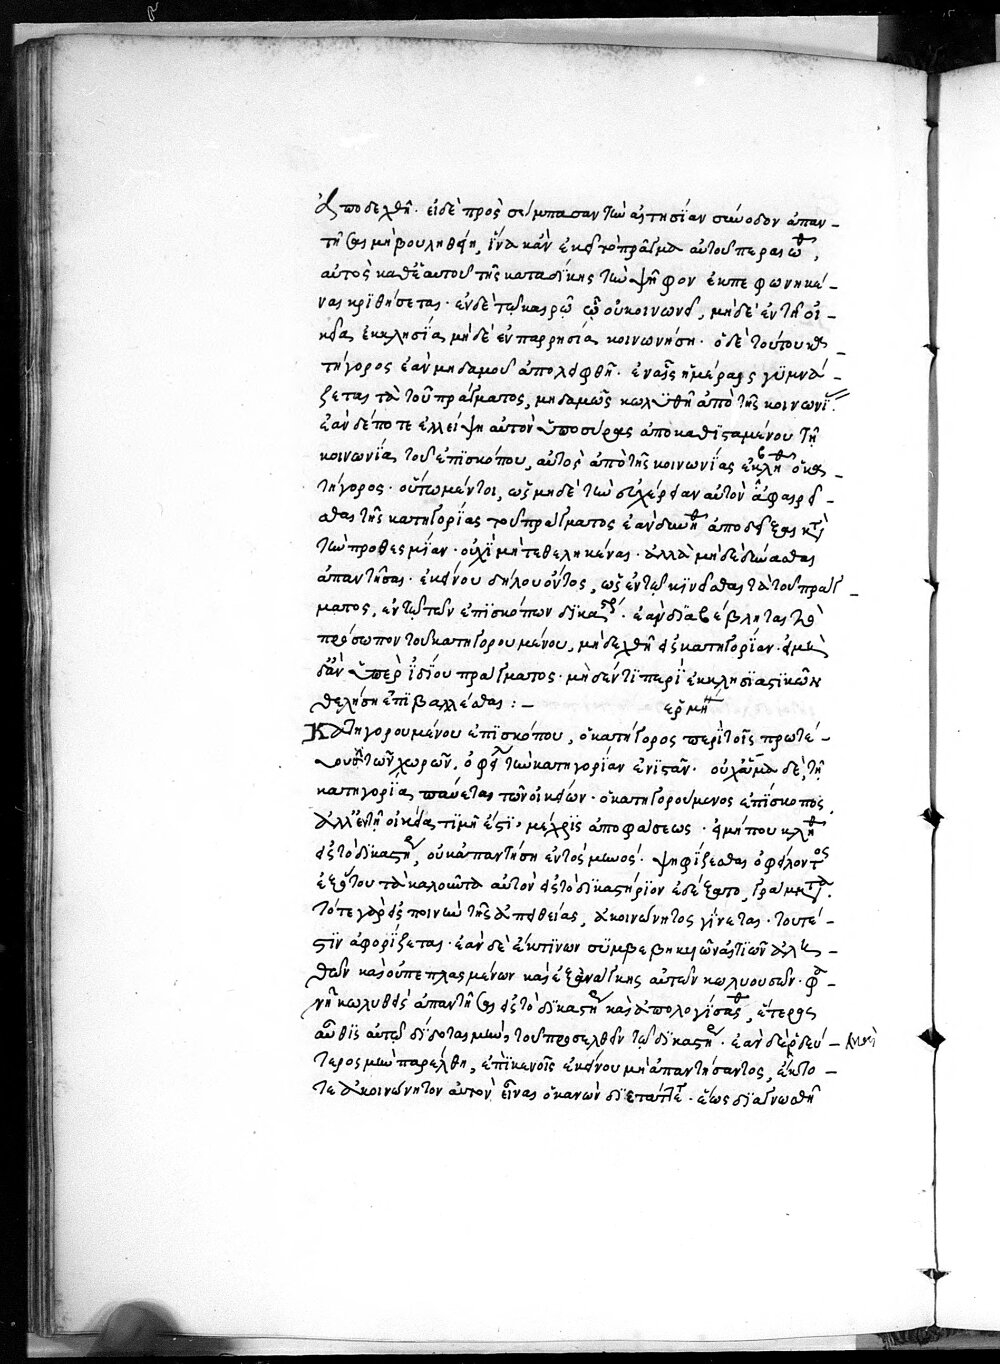 ἀποδειχθῆ· εἰ δὲ πρὸς σύμπασαν τὴν αἰτησίαν σύνοδον ἀπαν-
τῆσαι μὴ βουληθείη, ἵνα κἂν ἐκεῖ τὸ πρᾶγμα αὐτοῦ περαιωθῆ,
αὐτὸς καθ' ἑαυτοῦ τῆς καταδίκης τὴν ψῆφον ἐκπεφωνηκέ-
ναι κριθήσεται· ἐν δὲ τῷ καιρῷ ᾧ οὐ κοινωνεῖ, μηδὲ ἐν τῆ οἰ-
κεία ἐκκλησία μηδὲ ἐν παρρησία κοινωνήση· ὁ δὲ τούτου κα-
τήγορος ἐὰν μηδαμοῦ ἀπολειφθῆ· ἐν αἷς ἡμέραις γυμνά-
ζεται τὰ τοῦ πράγματος, μηδαμῶς κωλυθῆ ἀπὸ τῆς κοινωνί
ἐὰν δέ ποτε ἐλλείψη αὐτὸν ὑποσύρας ἀποκαθισταμένου τῆ
κοινωνία τοῦ ἐπισκόπου, αὐτὸς ἀπὸ τῆς κοινωνίας ἐκβληθῆ ὁ κα-
τήγορος· οὕτω μέντοι, ὡς μηδὲ τὴν εὐχέρειαν αὐτὸν ἀφαιρεῖ-
σθαι τῆς κατηγορίας τοῦ πράγματος ἐὰν δυνηθῆ ἀποδεῖξαι κατὰ
τὴν προθεσμίαν· οὐχὶ μὴ τεθεληκέναι· ἀλλὰ μὴ δεδυνῆσθαι
ἀπαντῆσαι· ἐκείνου δήλου ὄντος, ὡς ἐν τῷ κινεῖσθαι τὰ τοῦ πράγ-
ματος, ἐν τῷ τῶν ἐπισκόπων δικαστηρίῳ· ἐὰν διαβέβληται τὸ
πρόσωπον τοῦ κατηγορουμένου, μὴ δεχθῆ εἰς κατηγορίαν· εἰ μὴ
δ' ἂν ὑπὲρ ἰδίου πράγματος· μὴ μέντοι περὶ ἐκκλησιαστικῶν
θελήση ἐπιβάλλεσθαι :– ἑρμη
Κατηγορουμένου ἐπισκόπου, ὁ κατήγορος περὶ τοῖς πρωτε-
ύουσι τῶν χωρῶν, ὀφείλει τὴν κατηγορίαν ἐνιστᾶν· οὐχ ἅμα δὲ τῆ
κατηγορία παύεται τῶν οἰκείων· ὁ κατηγορούμενος ἐπίσκοπος
ἀλλ' ἐν τῆ οἰκεία τιμῆ ἐστι, μέχρις ἀποφάσεως· εἰ μήπου κληθῆ
εἰς τὸ δικαστήριον, οὐκ ἀπαντήση ἐντὸς μηνός· ψηφίζεσθαι ὀφείλοντος
ἐξ ὅτου τὰ καλοῦντα αὐτὸν εἰς τὸ δικαστήριον ἐδέξατο, γράμματα·
τότε γὰρ εἰς ποινὴν τῆς ἀπειθείας, ἀκοινώνητος γίνεται· τουτέ-
στιν ἀφορίζεται· ἐὰν δὲ ἐκ τινων συμβεβηκυιῶν αἰτιῶν ἀλη-
θῶν καὶ οὐ πεπλασμένων καὶ ἐξ ἀνάγκης αὐτὸν κωλυουσῶν· φα-
νῆ κωλυθεὶς ἀπαντῆσαι εἰς τὸ δικαστήριον καὶ ἀπολογήσασθαι, ἕτερος
αὖθις αὐτῷ δίδοται μὴν, τοῦ προσελθεῖν τῷ δικαστηρίῳ· ἐὰν δὲ ὁ δεύ-
τερος μὴν παρέλθη, ἐπὶ κενοῖς ἐκείνου μὴ ἀπαντήσαντος, ἔκτο-
τε ἀκοινώνητον αὐτὸν εἶναι ὁ κανὼν διετάττει· ἕως διαγνωσθῆ